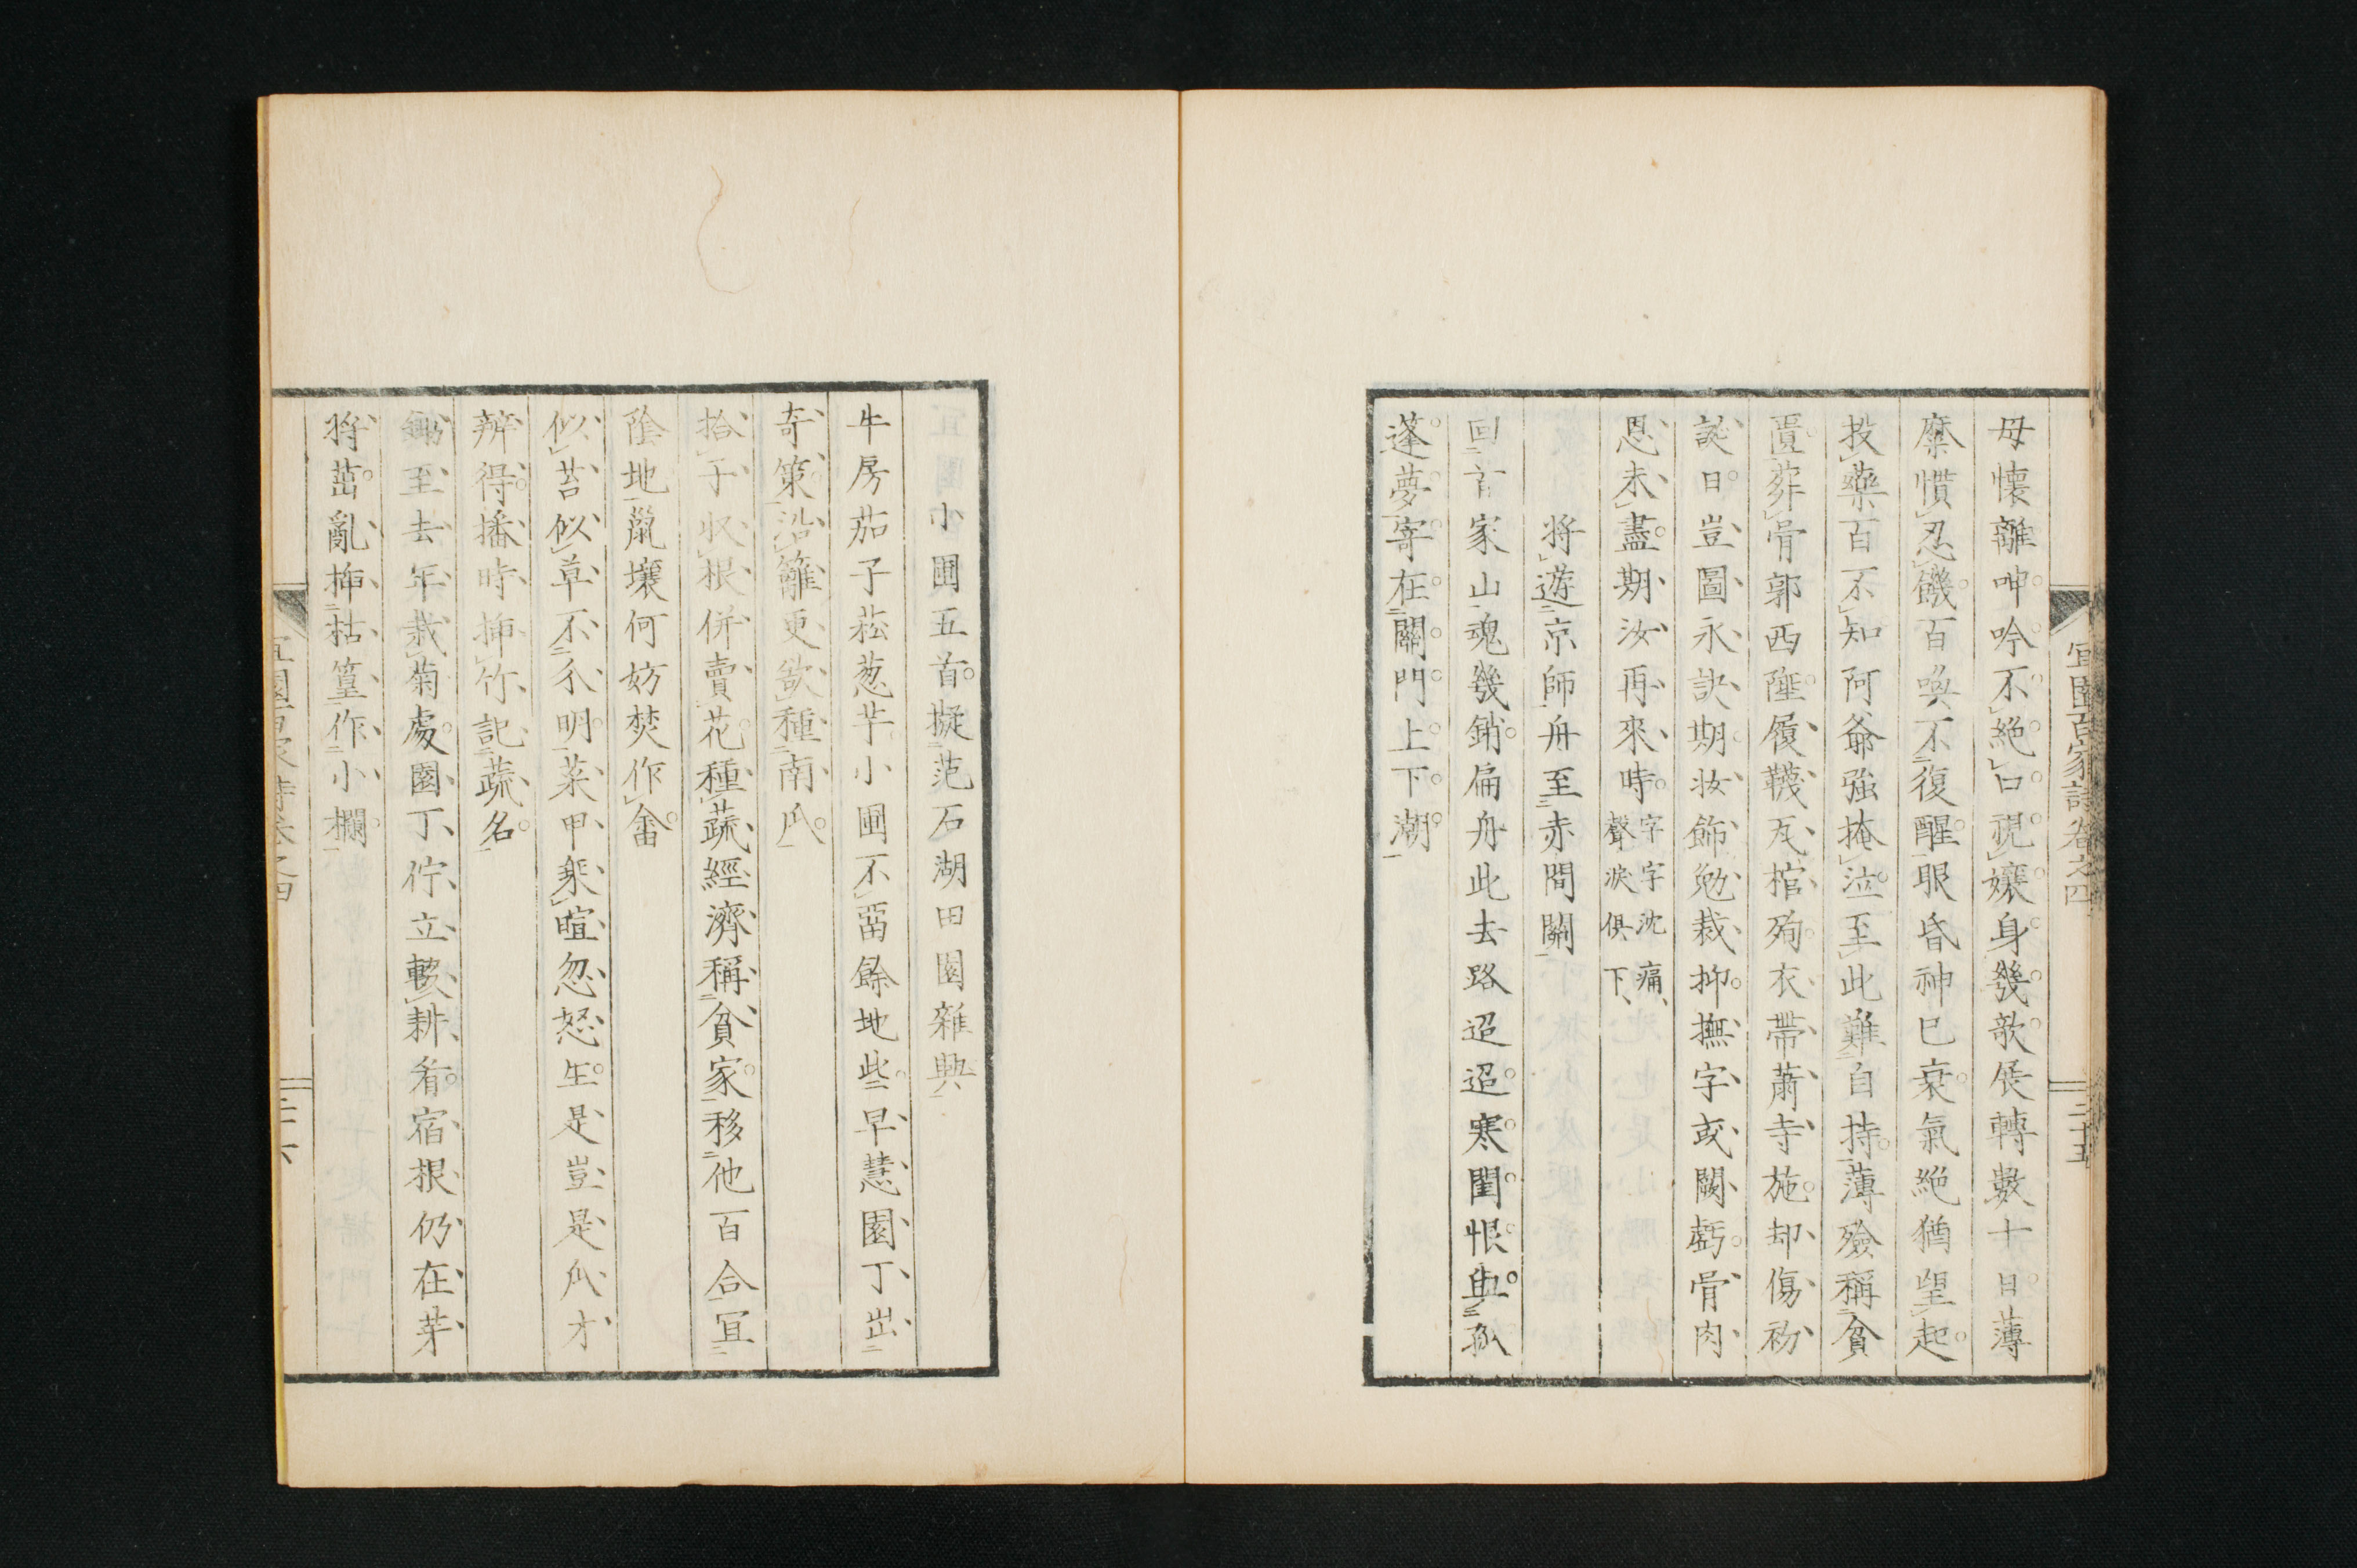 宜園百家詩卷之四 二十五
母懷離呻吟不絶口視孃身幾欹展轉數十日薄
糜慣忍饑百喚不復醒眼昏神已衰氣絶猶望起
投藥百不知阿爺強掩泣至此難自持薄殮稱貧
匱葬骨郭西陲履韈瓦棺殉衣帶蕭寺施却傷初
誕日豈圖永訣期妝飾勉裁抑撫字或闕虧骨肉
恩未盡期汝再來時 字字沈痛、聲淚俱下、
將遊京師舟至赤間關
回首家山魂幾銷扁舟此去路迢迢寒閨恨與孤
蓬夢寄在關門上下潮
小圃五首擬范石湖田園雜興
牛房茄子菘葱芋小圃不畱餘地些早慧園丁出
奇策沿籬更欲種南瓜
拾子收根併賣花種蔬經濟稱貧家移他百合宜
陰地鼠壤何妨焚作畬
似苔似草不分明菜甲乘暄忽怒生是豈是瓜才
辨得播時揷竹記蔬名
鋤至去年栽菊處園丁佇立輟耕看宿根仍在芽
將茁亂揷枯篁作小欄
宜園百家詩卷之四 二十六